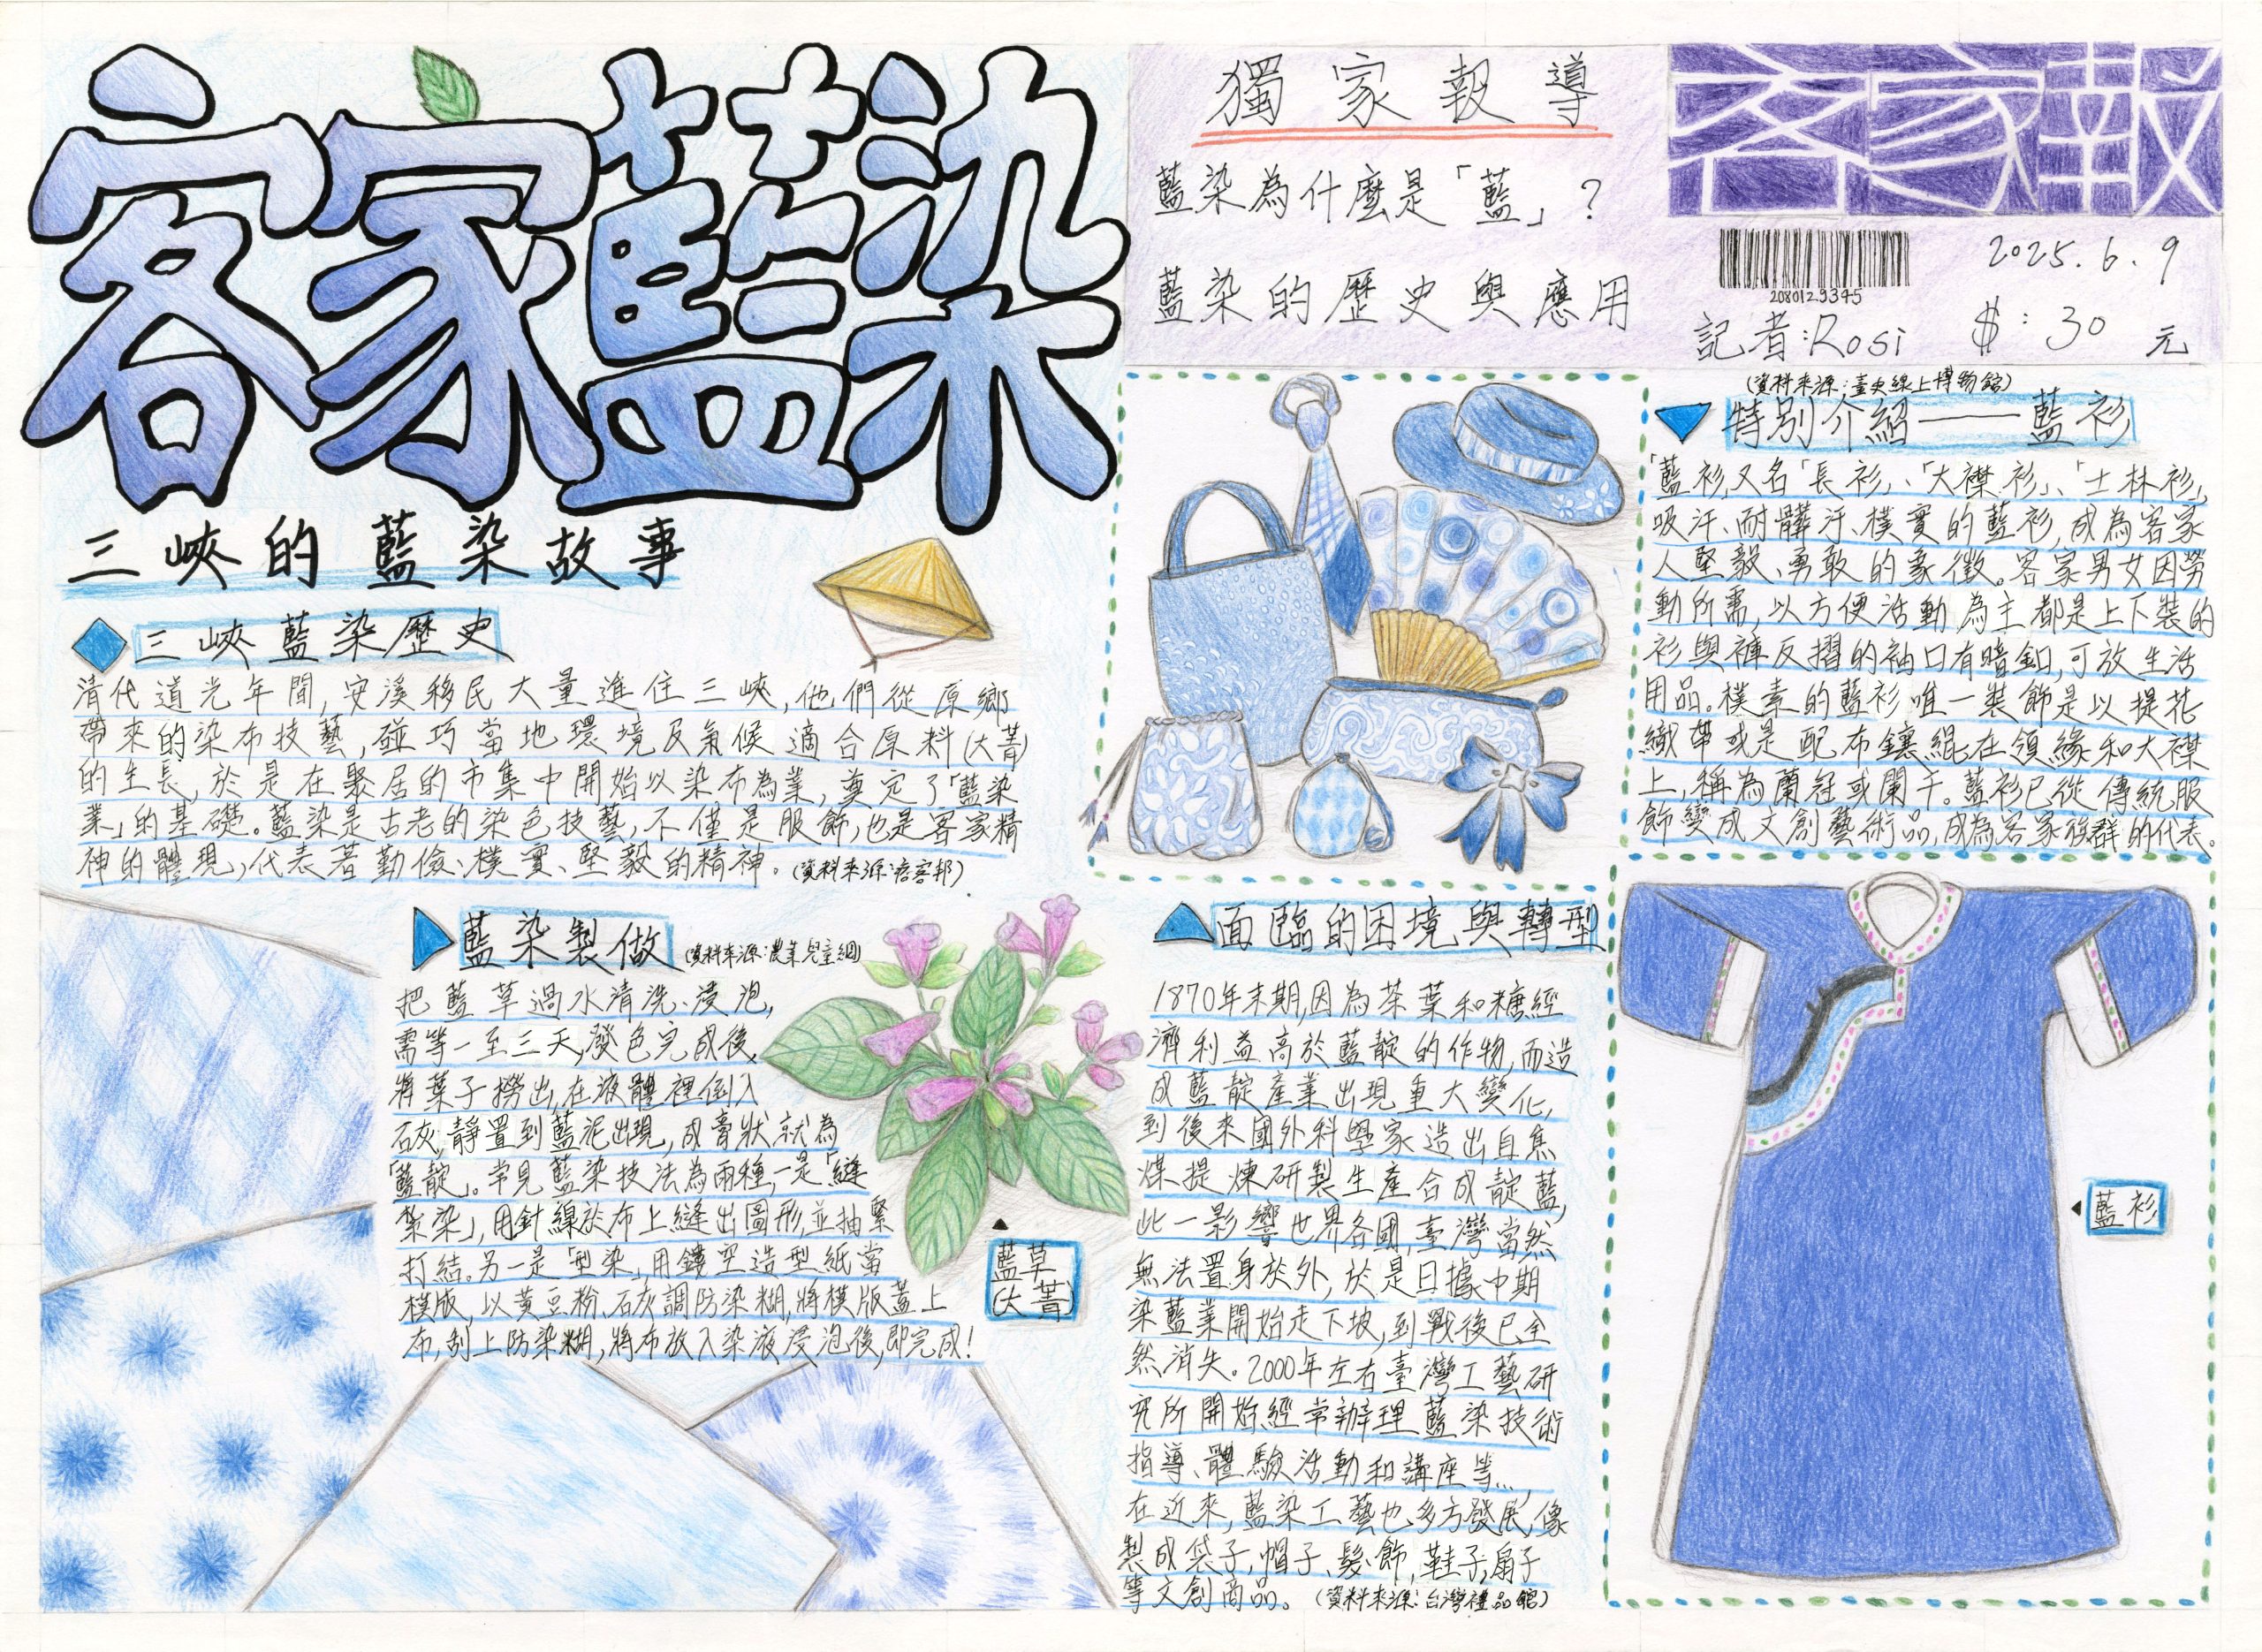 客家藍染
三峽的藍染故事
獨家報導
藍染為什麼是「藍」?
藍染的歷史與應用
客家報
2080129345
2025.6.9
記者:Rosi $:30元
三峽藍染歷史
清代道光年間,安溪移民大量進住三峽,他們從原鄉
帶來的染布技藝,碰巧當地環境及氣候適合原料(大菁)
的生長,於是在聚居的市集中開始以染布為業,奠定了「藍染
業」的基礎。藍染是古老的染色技藝,不僅是服飾,也是客家精
神的體現,代表著勤儉、樸實、堅毅的精神。(資料來源:痞客邦)
藍染製做(資料來源:農業兒童網)
把藍草過水清洗、浸泡,
需等一至三天,發色完成後,
將葉子撈出,在液體裡倒入
石灰,靜置到藍泥出現,成膏狀就為
「藍靛」。常見藍染技法為兩種,一是「縫
紮染」,用針線於布上縫出圖形,並抽緊
打結。另一是「型染」,用鏤空造型紙當
模版,以黃豆粉、石灰調防染糊,將模版蓋上
布,刮上防染糊,將布放入染液浸泡後,即完成!
藍草
(大菁)
(資料來源:臺史線上博物館)
特別介紹——藍衫
「藍衫」又名「長衫」、「大襟衫」、「士林衫」,
吸汗、耐髒汙、樸實的藍衫,成為客家
人堅毅、勇敢的象徵。客家男女因勞
動所需,以方便活動為主都是上下裝的
衫與褲反摺的袖口有暗釦,可放生活
用品。樸素的藍衫唯一裝飾是以提花
織帶或是配布鑲緄在領緣和大襟
上,稱為蘭冠或闌干。藍衫已從傳統服
飾變成文創藝術品,成為客家族群的代表。
面臨的困境與轉型
1870年末期,因為茶葉和糖經
濟利益高於藍靛的作物,而造
成藍靛產業出現重大變化,
到後來國外科學家造出自焦
煤提煉研製生產合成靛藍,
此一影響世界各國,臺灣當然
無法置身於外,於是日據中期
染藍業開始走下坡,到戰後已全
然消失。2000年左右臺灣工藝研
究所開始經常辦理藍染技術
指導、體驗活動和講座等…,
在近來,藍染工藝也多方發展,像
製成袋子,帽子、髮飾,鞋子,扇子
等文創商品。(資料來源:台灣禮品館)
藍衫